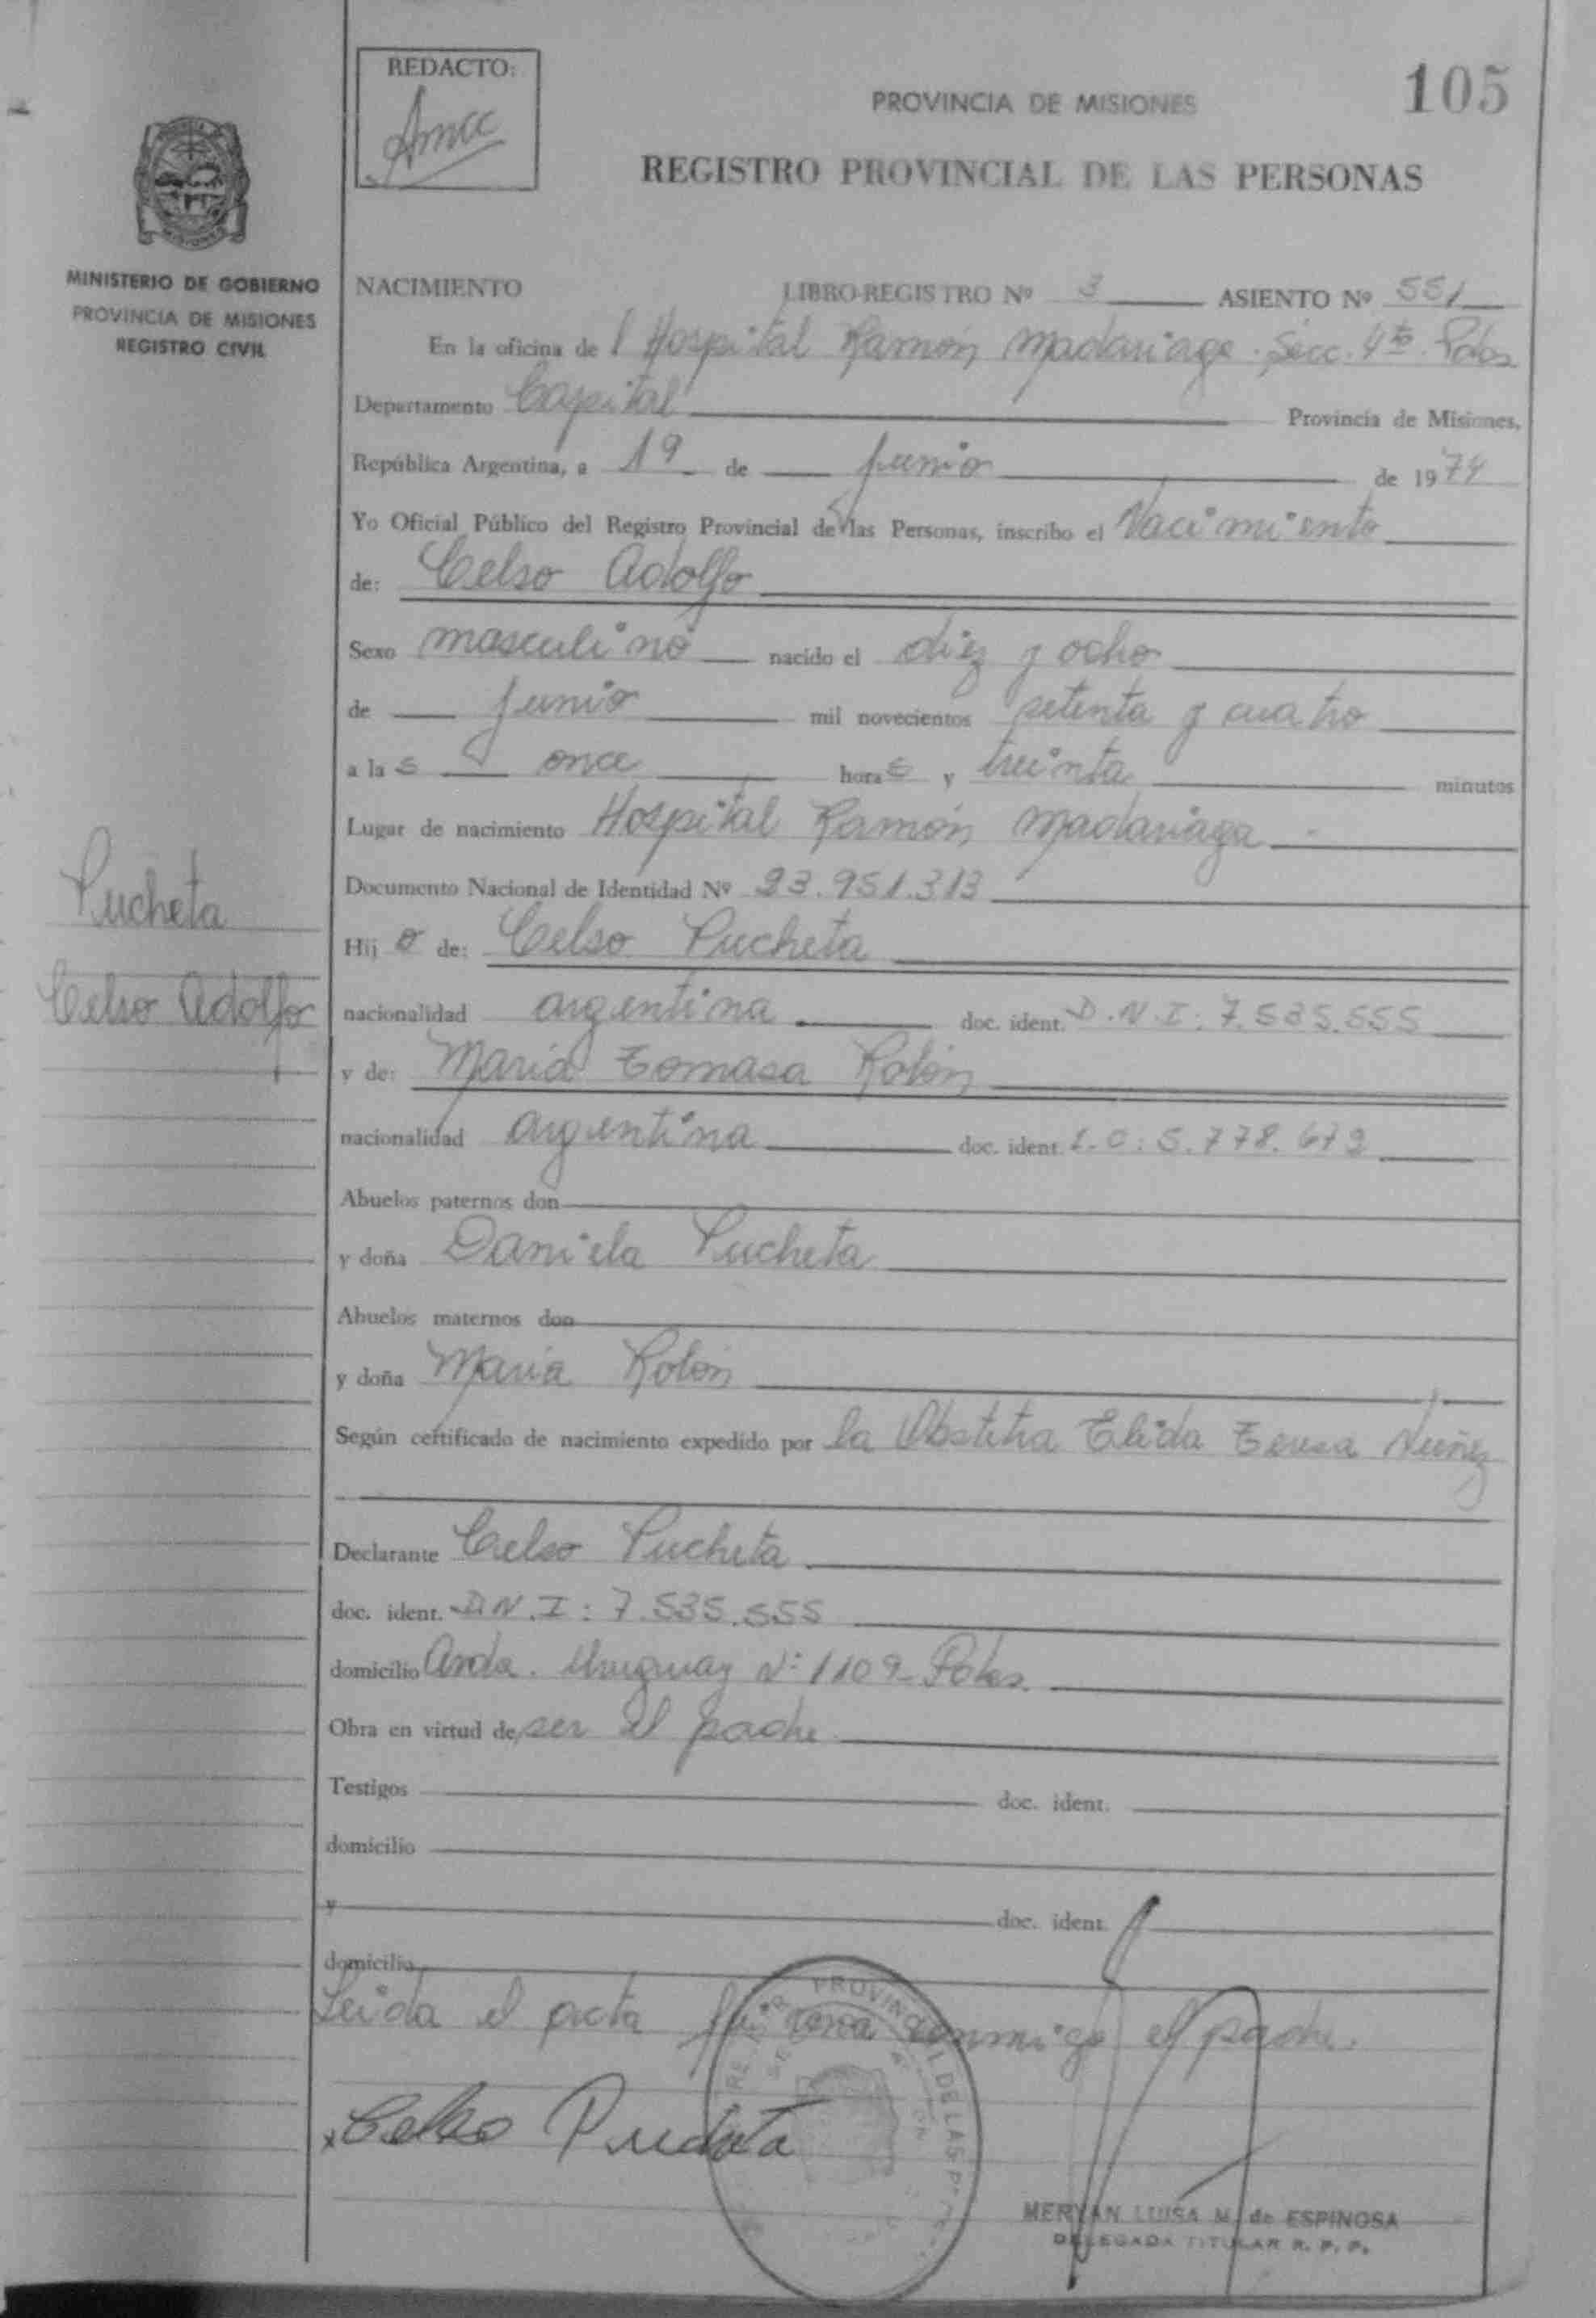 REDACTO:
Amcc
PROVINCIA DE MISIONES
105
REGISTRO PROVINCIAL DE LAS PERSONAS
MISIONES
MINISTERIO DE GOBIERNO
PROVINCIA DE MISIONES
REGISTRO CIVIL
NACIMIENTO LIBRO-REGISTRO Nº 3 ASIENTO Nº 551
En la oficina de l Hospital Ramón Madariaga. Secc. 4ta. Pdas
Departamento Capital Provincia de Misiones,
República Argentina, a 19 de junio de 1974
Yo Oficial Público del Registro Provincial de las Personas, inscribo el Nacimiento
de: Celso Adolfo
Sexo masculino nacido el diez y ocho
de junio mil novecientos setenta y cuatro
a las once horas y treinta minutos
Lugar de nacimiento Hospital Ramón Madariaga
Documento Nacional de Identidad Nº 23.951.313
Pucheta
Hijo de: Celso Pucheta
Celso Adolfo
nacionalidad argentina doc. ident. D.N.I: 7.535.555
y de: Maria Tomasa Rolón
nacionalidad argentina doc. ident. L.C: 5.778.672
Abuelos paternos don
y doña Daniela Pucheta
Abuelos maternos don
y doña Maria Rolón
Según certificado de nacimiento expedido por la Obstetra Elida Teresa Nuñez
Declarante Celso Pucheta
doc. ident. D.N.I: 7.535.555
domicilio Avda. Uruguay Nº 1109 - Pdas.
Obra en virtud de ser el padre
Testigos doc. ident.
domicilio
y doc. ident.
domicilio
Leida el acta firma conmigo el padre.
PROVINCIAL DE LAS
x Celso Pucheta
MERYAN LUISA M. de ESPINOSA
DELEGADA TITULAR R. P. P.